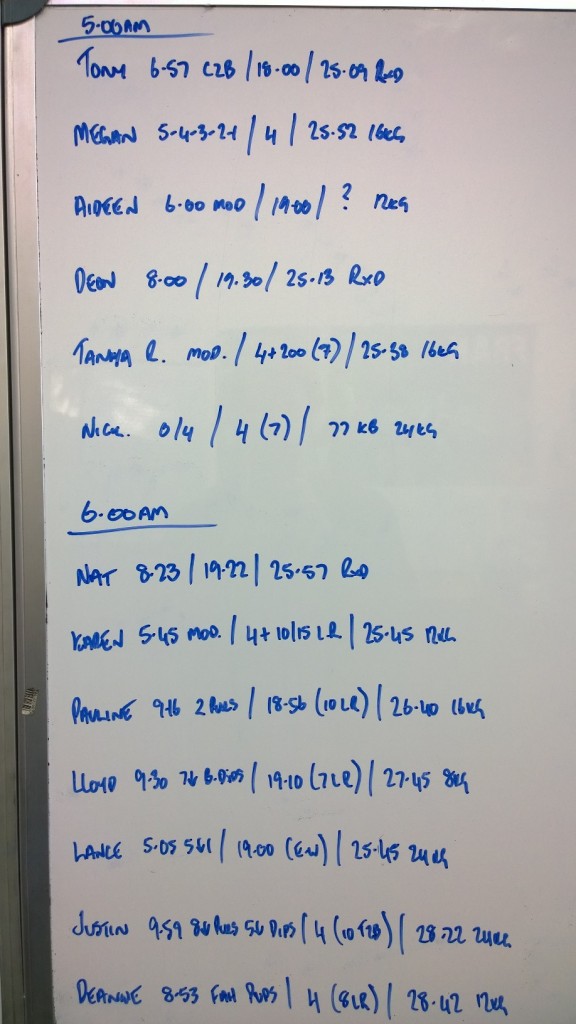 5.00AM
TONY 6.57 C2B / 18.00 / 25.09 RXD
MEGAN 5-4-3-2-1 / 4 / 25.52 16KG
AIDEEN 6.00 MOD / 19.00 / ? 12KG
DEON 8.00 / 19.30 / 25.13 RXD
TANYA R. MOD. / 4+200 (7) / 25.38 16KG
NICK. 0/4 / 4 (7) / 77 KB 24KG
6.00AM
NAT 8.23 / 19.22 / 25.57 RXD
KAREN 5.45 MOD. / 4+10/15 LR / 25.45 12KG
PAULINE 9.16 2 PULLS / 18.56 (10LR) / 26.40 16KG
LLOYD 9.30 B.DIPS / 19.10 (7LR) / 27.45 8KG
LANCE 5.05 / 19.00 / 25.45 24KG
JUSTIN 9.59 PULLS DIPS / 4 (10 T2B) / 28.22 24KG
DEANNE 8.53 / 4 (8LR) / 28.42 12KG